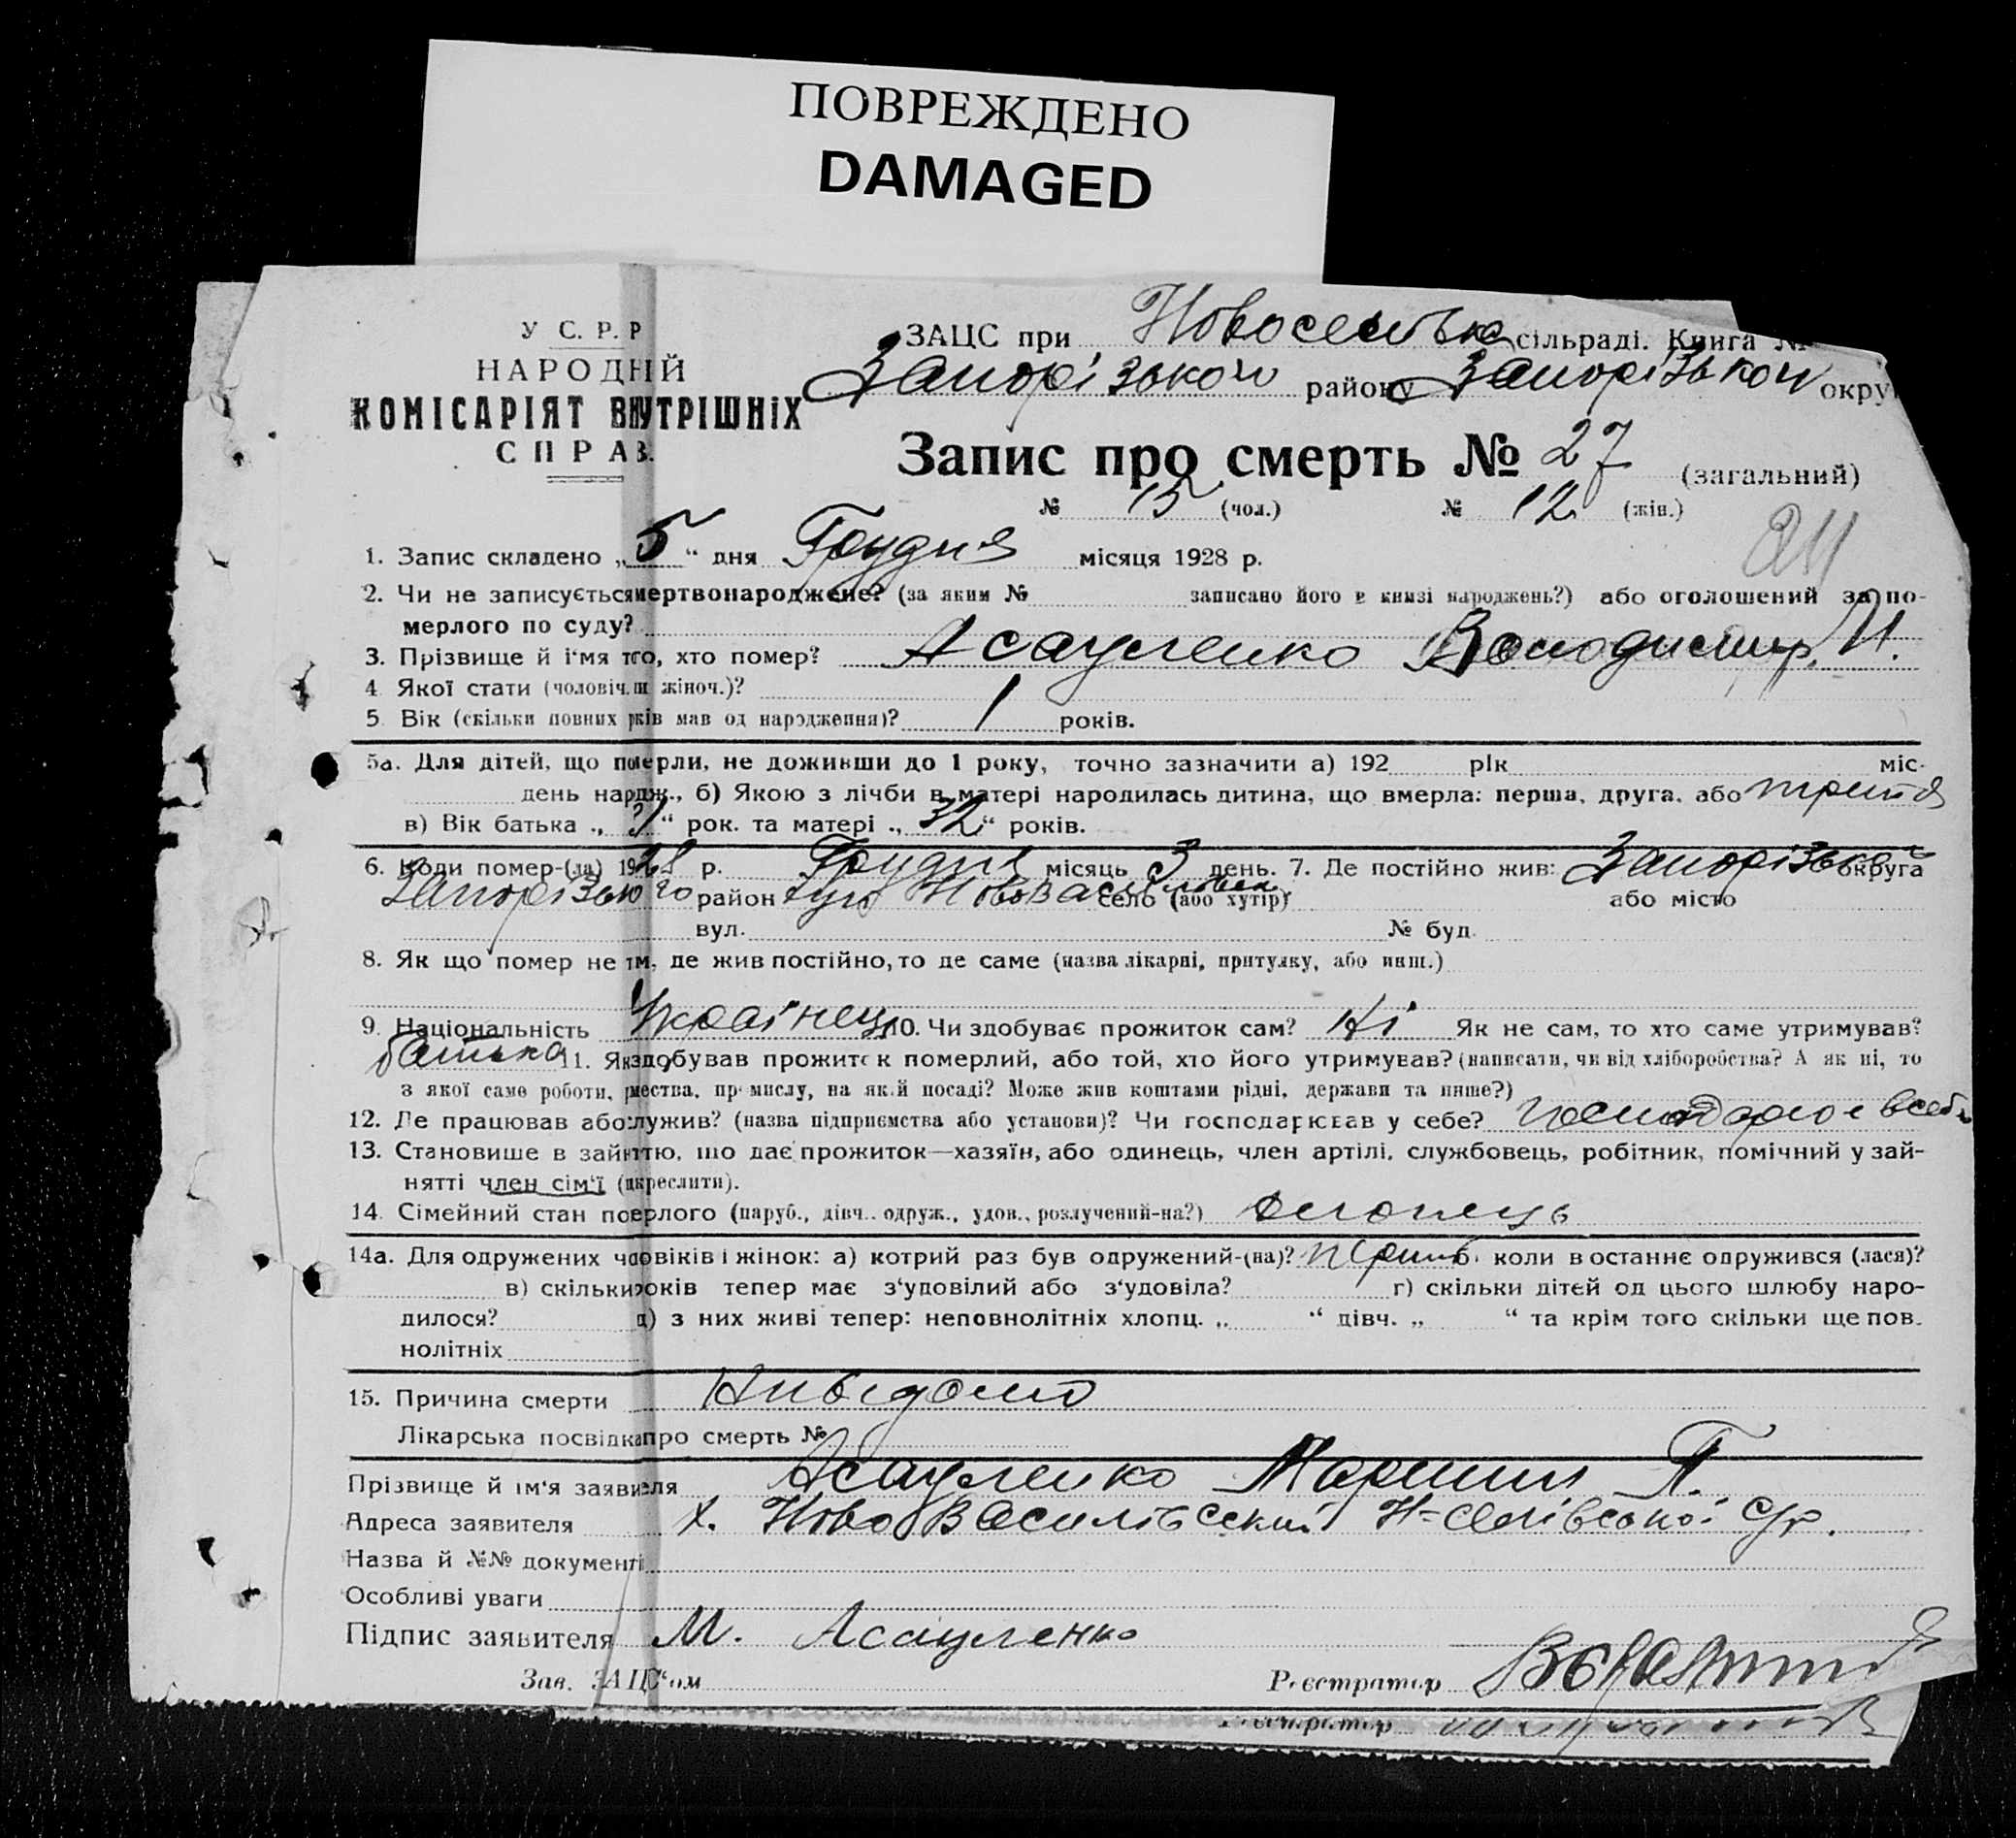 ПОВРЕЖДЕНО
DAMAGED
У С. Р. Р
НАРОДНІЙ
КОМІСАРІЯТ ВНУТРІШНІХ
СПРАВ.
ЗАЦС при Новоселівка сільраді. Книга №
Запорізького району Запорізької окру
Запис про смерть № 27 (загальний)
№ 15 (чол.) № 12 (жін.)
1. Запис складено „5“ дня Грудня місяця 1928 р.
2. Чи не записується мертвонароджене? (за яким № записано його в книзі народжень?) або оголошений за по-
мерлого по суду?
3. Прізвище й і'мя того, хто помер? Асауленко Володимир И.
4 Якої стати (чоловіч. чи жіноч.)?
5 Вік (скільки повних років мав од народження)? 1 років.
5а. Для дітей, що померли, не доживши до 1 року, точно зазначити а) 192 рік міс.
день нардж., б) Якою з лічби в матері народилась дитина, що вмерла: перша, друга, або третя
в) Вік батька „31“ рок. та матері „32“ років.
6. Коли помер-(ла) 1928 р. Грудня місяць 3 день. 7. Де постійно жив: Запорізька округа
Запорізького район хут Нововасиловск село (або хутір) або місто
вул. № буд.
8. Як що помер не там, де жив постійно, то де саме (назва лікарні, притулку, або инш.)
9. Національність Українец 10. Чи здобуває прожиток сам? Ні Як не сам, то хто саме утримував?
батько 11. Як здобував прожиток померлий, або той, хто його утримував? (написати, чи від хліборобства? А як ні, то
з якої саме роботи, ремества, промислу, на якій посаді? Може жив коштами рідні, держави та инше?)
12. Де працював або служив? (назва підприємства або установи)? Чи господарював у себе? господарює в себе
13. Становище в зайняттю, що дає прожиток—хазяїн, або одинець, член артілі, службовець, робітник, помічний у зай-
нятті член сім'ї (підкреслити).
14. Сімейний стан померлого (паруб., дівч., одруж., удов., розлучений-на?) хлопець
14а. Для одружених чоловіків і жінок: а) котрий раз був одружений-(на)? перший б) коли востаннє одружився (лася)?
в) скільки років тепер має з'удовілий або з'удовіла? г) скільки дітей од цього шлюбу наро-
дилося? д) з них живі тепер: неповнолітніх хлопц. „ “ дівч. „ “ та крім того скільки ще пов-
нолітніх
15. Причина смерти Нивідомо
Лікарська посвідка про смерть №
Прізвище й ім'я заявителя Асауленко П.
Адреса заявителя х. Ново Василівський Н-селівської С/р.
Назва й №№ документів
Особливі уваги
Підпис заявителя М. Асауленко
Зав. ЗАЦС'ом Реєстратор
Реєстратор